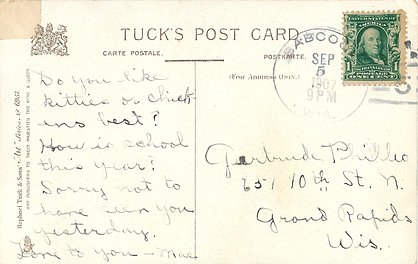 TUCK'S POST CARD
CARTE POSTALE.
POSTKARTE.
(For Address Only.)
Raphael Tuck & Sons'
ART PUBLISHERS TO THEIR MAJESTIES THE KING & QUEEN
Do you like
kitties or chick
ens best?
How is school
this year?
Sorry not to
have seen you
yesterday.
Love to you – Mae.
BABCO
SEP
5
1907
9 PM
WIS.
Gertrude Philleo
651 10th St. N.
Grand Rapids
Wis.